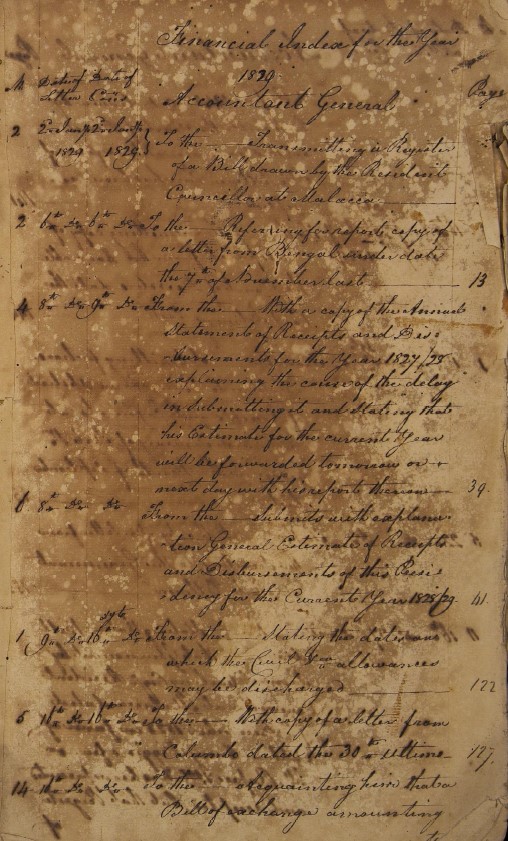 Financial Index for the Year
1829
No Date of Date of Page
Letter Cons
Accountant General
2 2d Jany 2d Jany To the — Transmitting a Register
1829 1829 of a Bill drawn by the Resident
Councillor at Malacca
2 6th Do 6th Do To the — Referring for report copy of
a letter from Bengal under date
the 7th of November last — 13
4 8th Do 9th Do From the — With a copy of the Annual
Statements of Receipts and Dis-
bursements for the Year 1827/28
explaining the cause of the delay
in submitting it and stating that
his Estimate for the current Year
will be forwarded tomorrow or
next day with his report thereon — 39
6 8th Do Do From the — Submits with explana-
tion General Estimate of Receipts
and Disbursements of this Presi-
dency for the Current Year 1828/29 41
1 9th Do 16th Do From the — Stating the dates on
which the Civil allowances
may be discharged — 122
5 16th Do 16th Do To the — With copy of a letter from
Columbo dated the 30th ultimo 127
14 16th Do Do To the — Acquainting him that a
Bill of exchange amounting